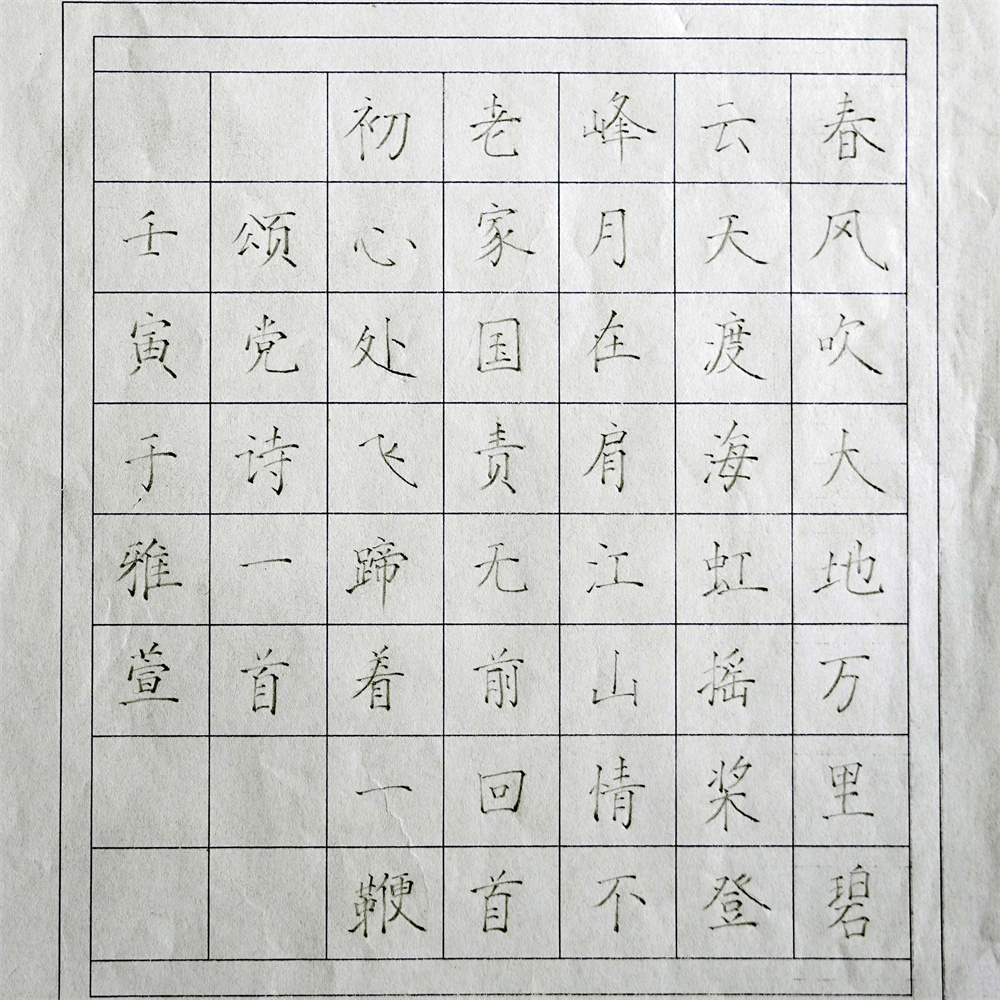 春风吹大地万里碧
云天度海虹摇桨登
峰月在肩江山情不
老家国责无前回首
初心处飞蹄着一鞭
颂党诗一首
壬寅于雅萱